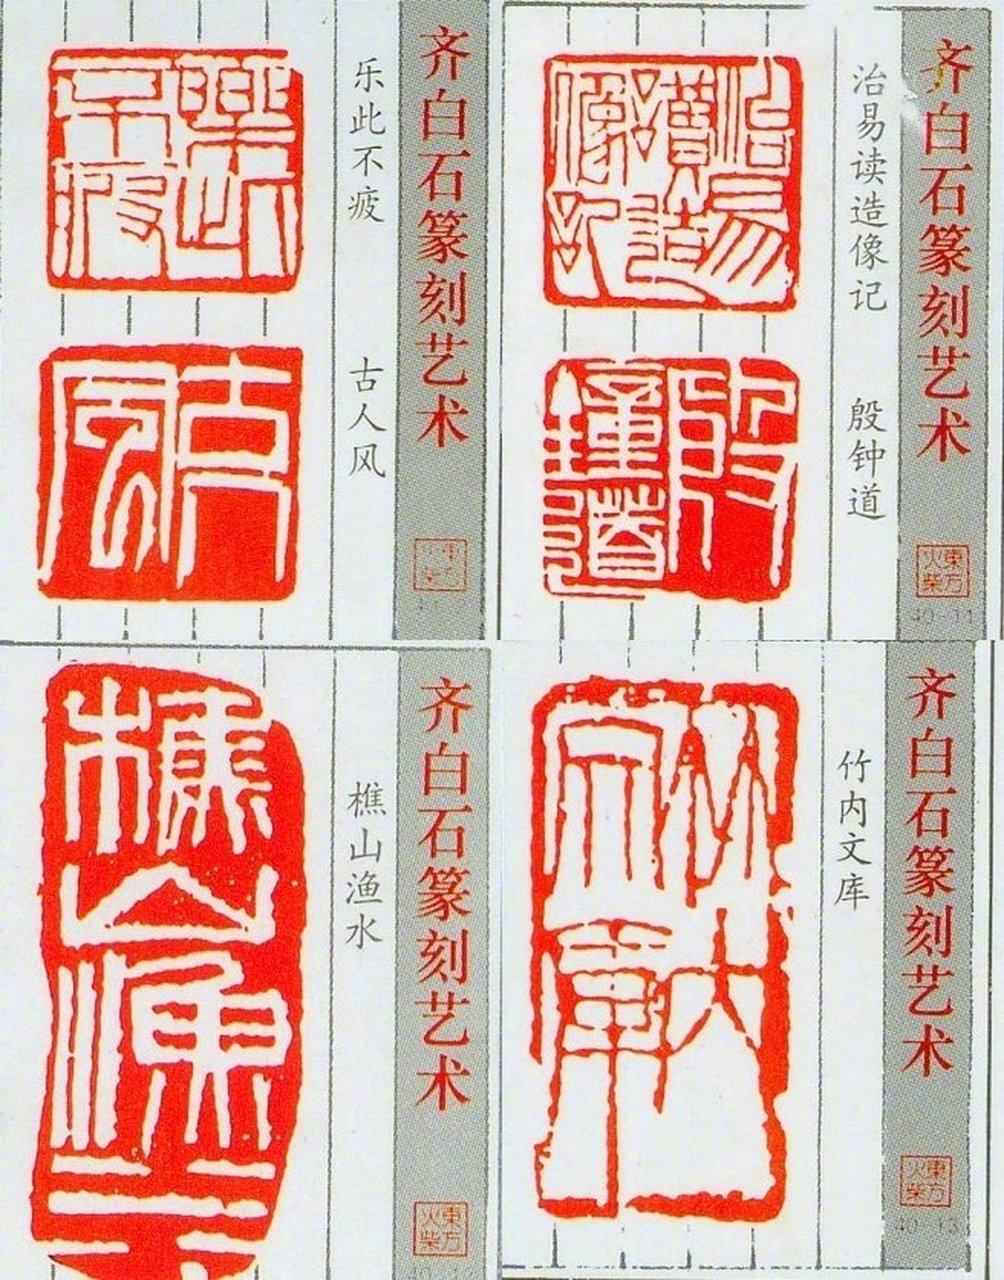 齐白石篆刻艺术
乐此不疲
古人风
東方
火柴
齐白石篆刻艺术
治易读造像记
殷钟道
東方
火柴
40-11
齐白石篆刻艺术
樵山渔水
東方
火柴
齐白石篆刻艺术
竹内文库
東方
火柴
40-13